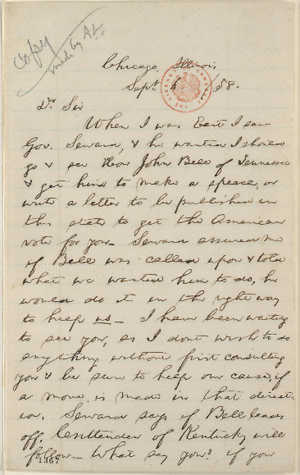 copy
made by A.L.
Chicago, Illinois,
Sept. 6 58.
Dr Sir
When I was East I saw
Gov. Seward, & he wanted I should
go & see Hon John Bell of Tennessee
& get him to make a speace, or
write a letter to be published in
this state to get the American
vote for you. Seward assured me
if Bell was called upon & told
what we wanted him to do, he
would do it in the right way
to keep us — I have been waiting
to see you, as I dont wish to do
anything without first consulting
you & be sure to keep our cause, if
a move is made in that direct-
ion. Seward says if Bell leads
off, Crittenden of Kentucky will
follow — What say you? if you
1367